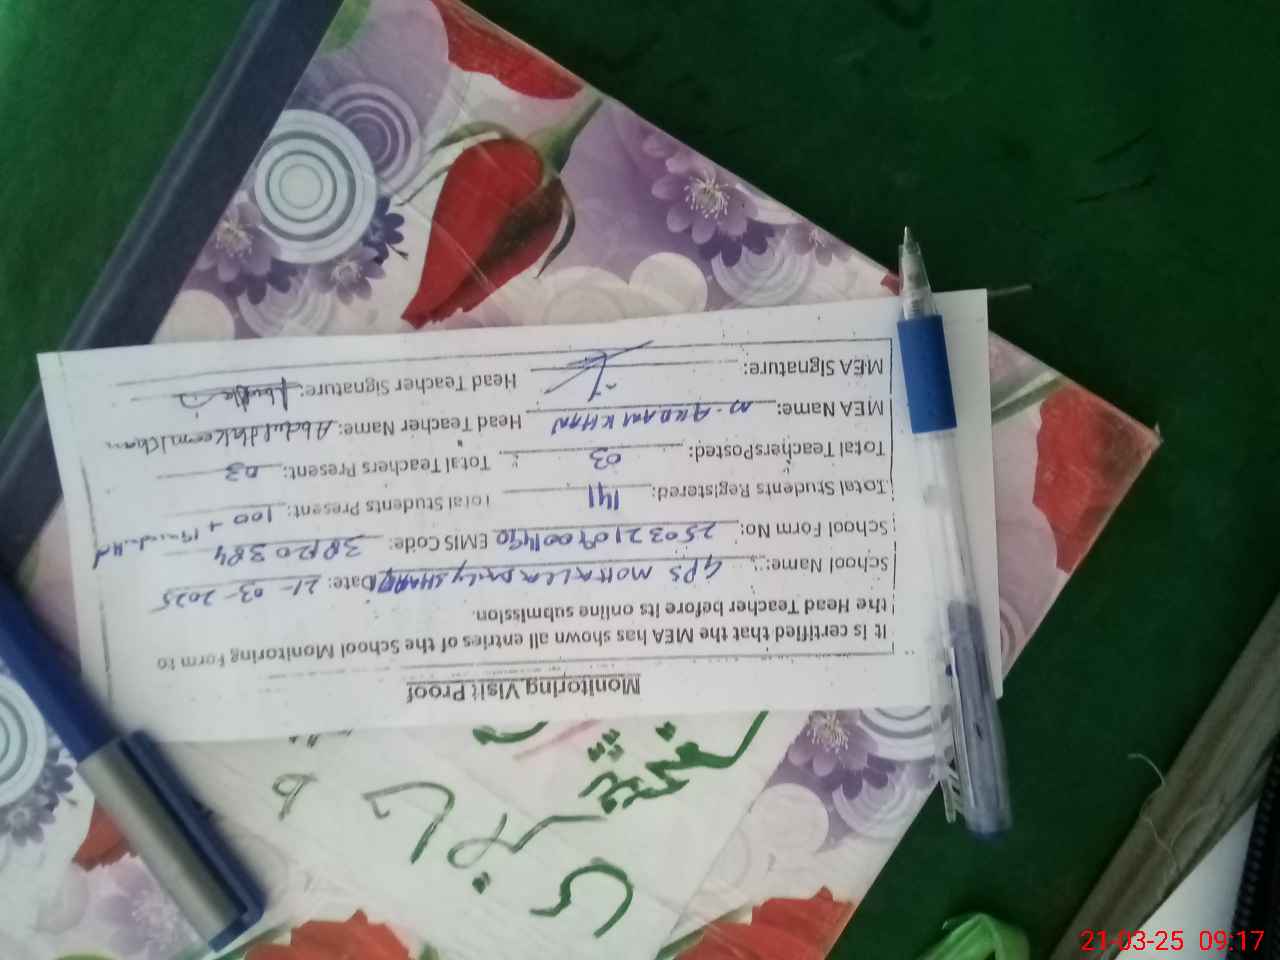 Monitoring Visit Proof
It is certified that the MEA has shown all entries of the School Monitoring Form to
the Head Teacher before its online submission.
School Name: GPS MOHALLA Date: 21-03-2025
School Form No: EMIS Code: 38120384
Total Students Registered: 141 Total Students Present: 100 +
Total TeachersPosted: 03 Total Teachers Present: 03
MEA Name: M. AKRAM KHAN Head Teacher Name: Abdul Hakeem Khan
MEA Signature: Head Teacher Signature:
حاضری
21-03-25 09:17